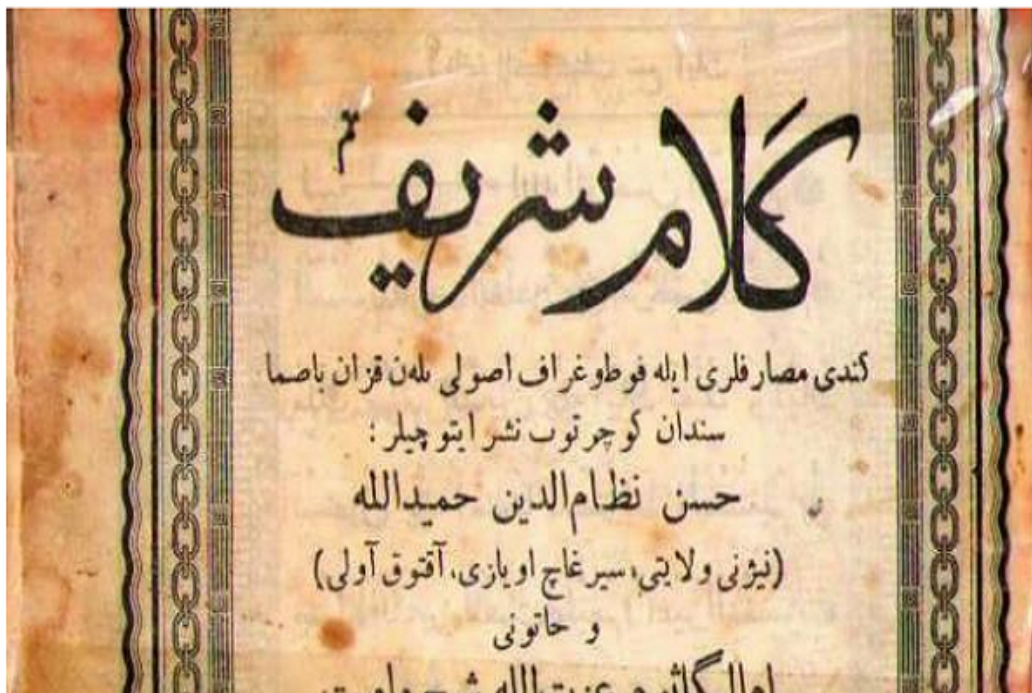 كلام شريف
كندى مصارفلرى ايله فوطوغراف اصولى بلەن قزان باصما
سندان كوچرتوب نشر ايتوچيلر :
حسن نظام‌الدين حميدالله
(نيژنى ولايتى، سيرغاچ اويازى، آقتوق آولى)
و خاتونى